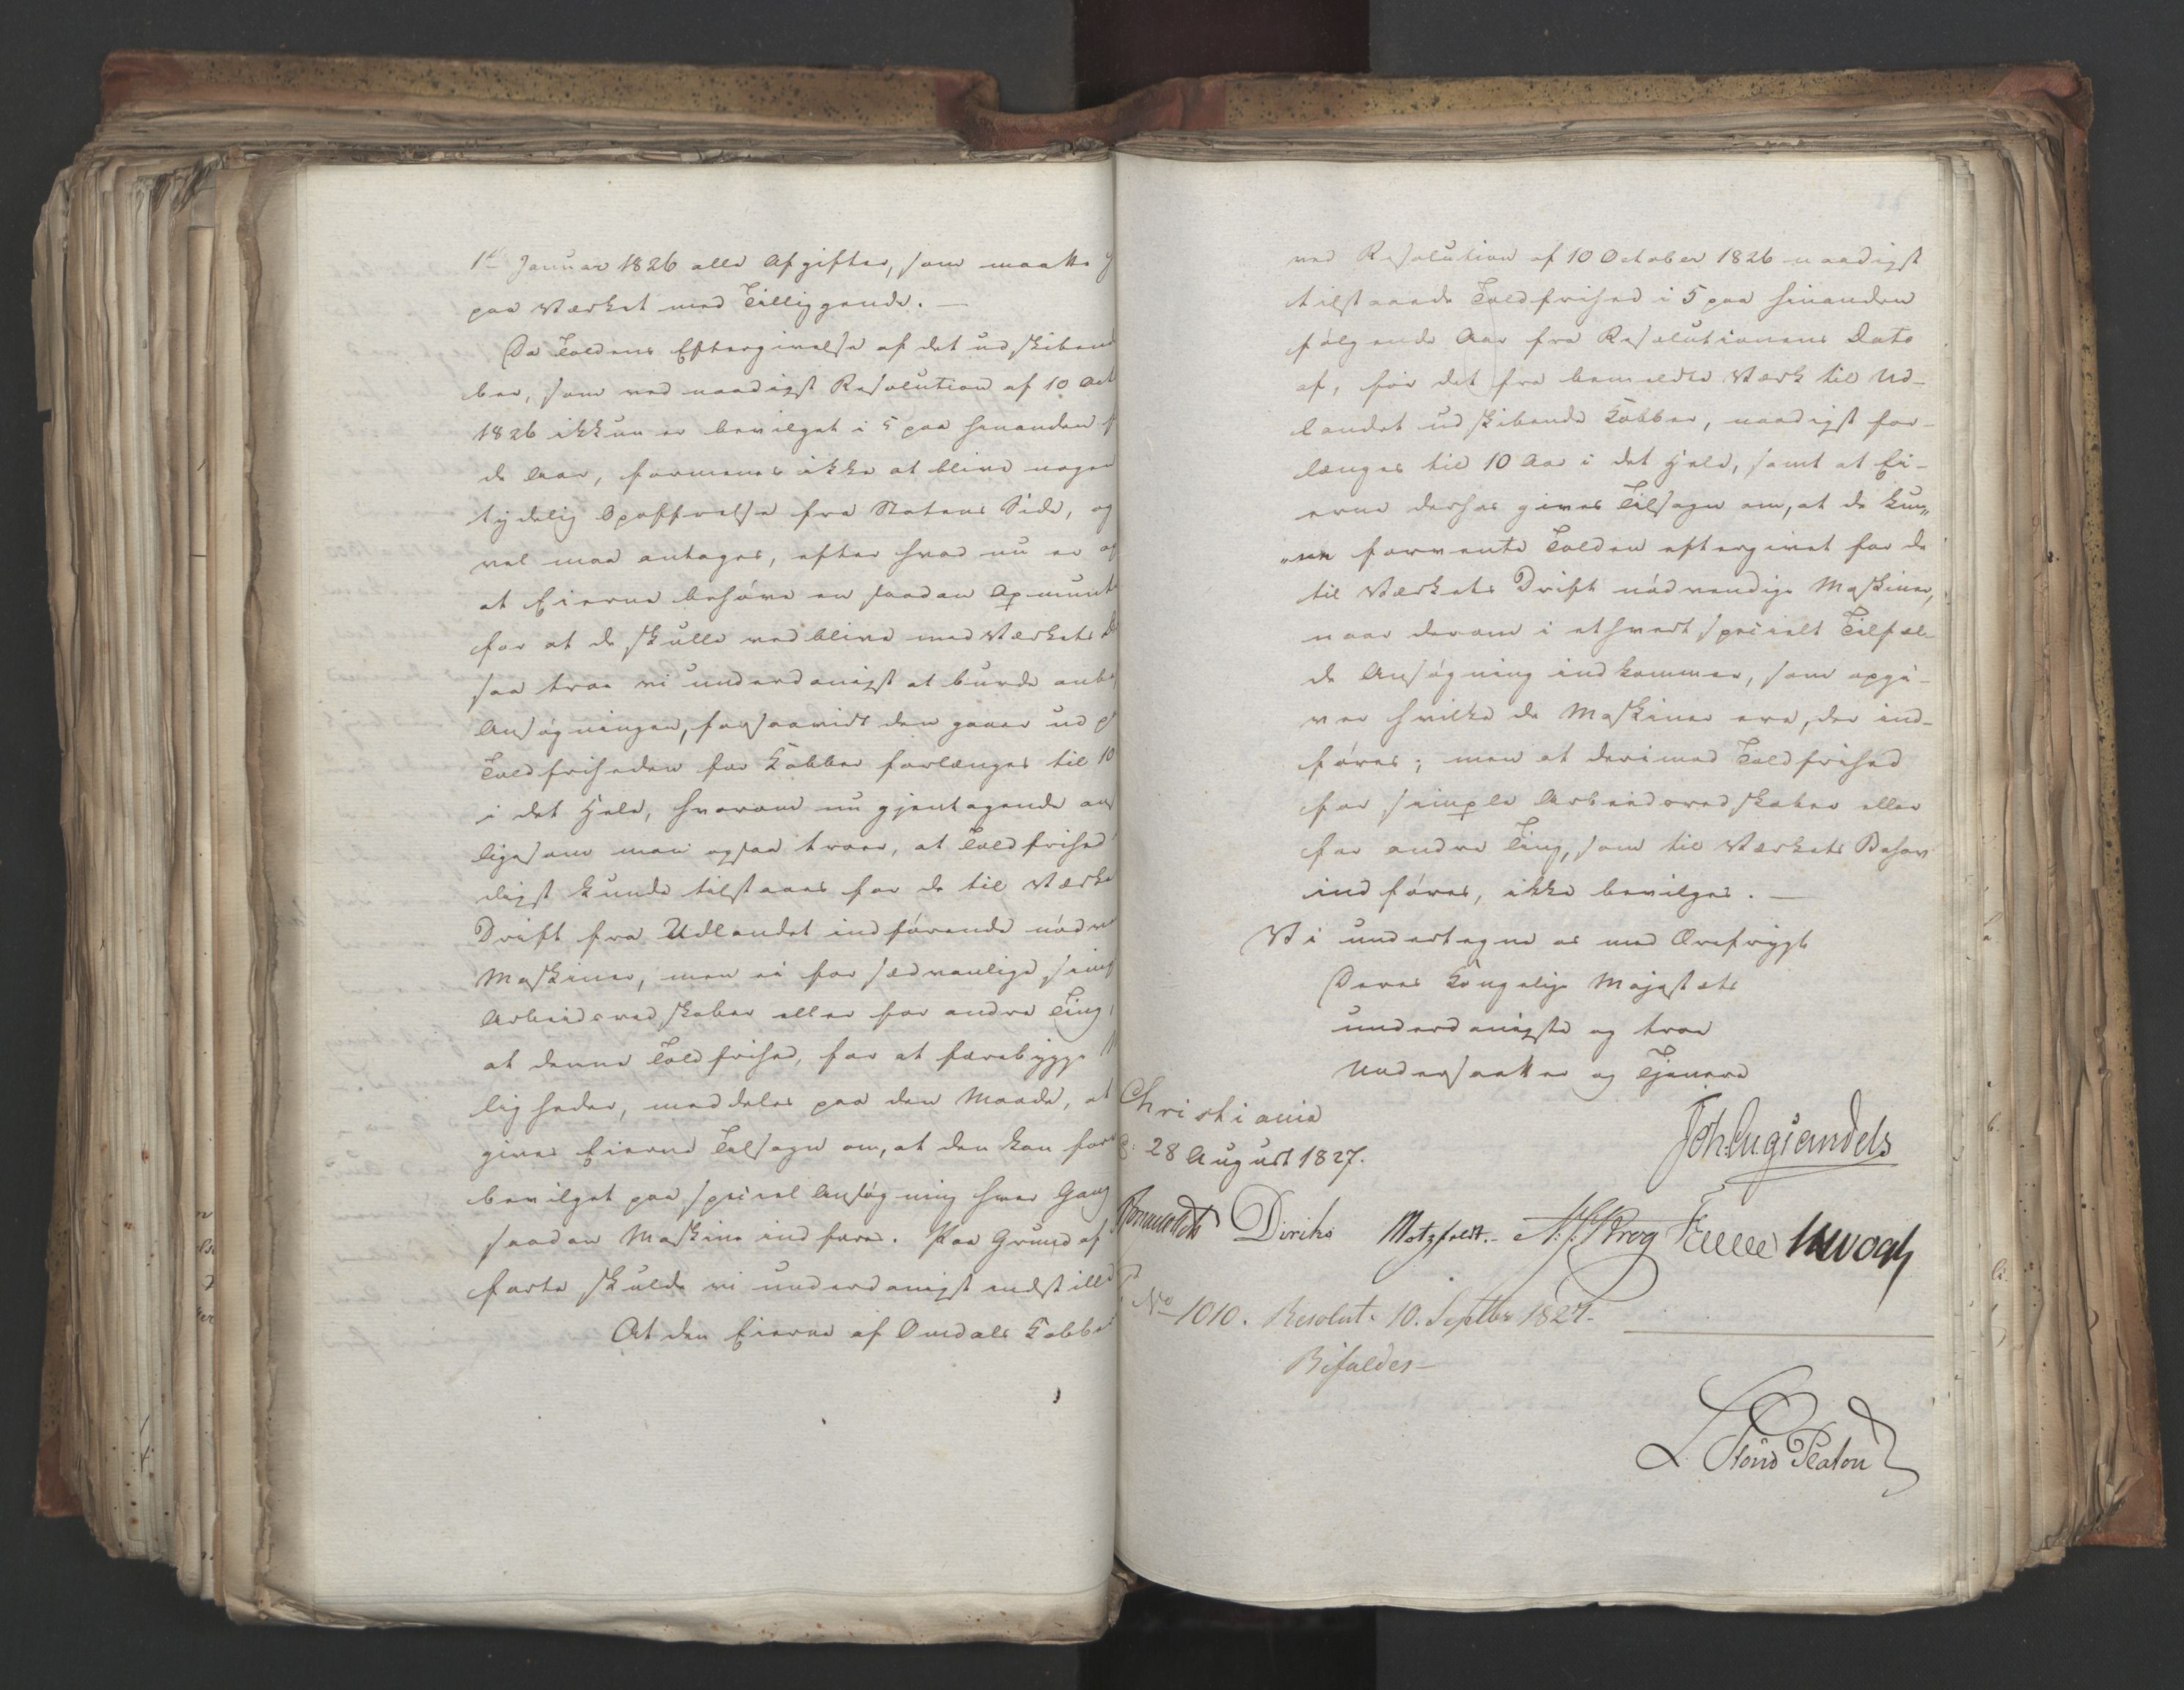 1ste Januar 1826 alle Afgifter, som maatte
paa Værket med Tilliggende. —
Da Toldens Eftergivelse af det udskibend
ber, som ved naadigst Resolution af 10 Oct
1826 ikkun er bevilget i 5 paa hinanden f
de Aar, formenes ikke at blive nogen
tydelig Opoffrelse fra Statens Side, og
vel maa antages, efter hvad nu er op
at Eierne behøve en saadan Opmunt
for at de skulle vedblive med Værkets D
saa troe vi underdanigst at burde anbe
Ansøgningen, forsaavidt den gaaer ud p
Toldfriheden for Kobber forlænges til 10
i det Hele, hvorom nu gjentagende ans
ligesom man ogsaa troer, at Toldfrihed
digst kunde tilstaaes for de til Værke
Drift fra Udlandet indførende nødve
Maskiner, men ei for sædvanlige simp
Arbeidsredskaber eller for andre Ting,
at denne Toldfrihed, for at forebygge
ligheder, meddeles paa den Maade, at
gives Eierne Tilsagn om, at den kan for
bevilget paa speciel Ansøgning hver Gang
saadan Maskine indføres. Paa Grund af
førte skulde vi underdanigst indstille
At den Eierne af Omdals Kobbe
ved Resolution af 10 October 1826 naadigst
tilstaaede Toldfrihed i 5 paa hinanden
følgende Aar fra Resolutionens Dato
af, for det fra bemeldte Værk til Ud-
landet udskibende Kobber, naadigst for-
længes til 10 Aar i det Hele, samt at Ei-
erne derhos gives Tilsagn om, at de kun„
„ne forvente Tolden eftergivet for de
til Værkets Drift nødvendige Maskiner,
naar derom i ethvert specielt Tilfæl-
de Ansøgning indkommer, som opgi-
ver hvilke de Maskiner ere, der ind-
føres; men at derimod Toldfrihed
for simple Arbeidsredskaber eller
for andre Ting, som til Værkets Behov
indføres, ikke bevilges. —
Vi undertegne os med Ærefrygt
Deres Kongelige Majestæts
underdanigste og troe
Undersaatter og Tjenere
Christiania
d: 28 August 1827.
Joh. Aug. Sandels
Sommerfeldt Diriks Motzfeldt. A. S. Krog Fasting JHVogt
No 1010. Resolut. 10. Septbr 1827.
Bifaldes—
L Stoud Platou